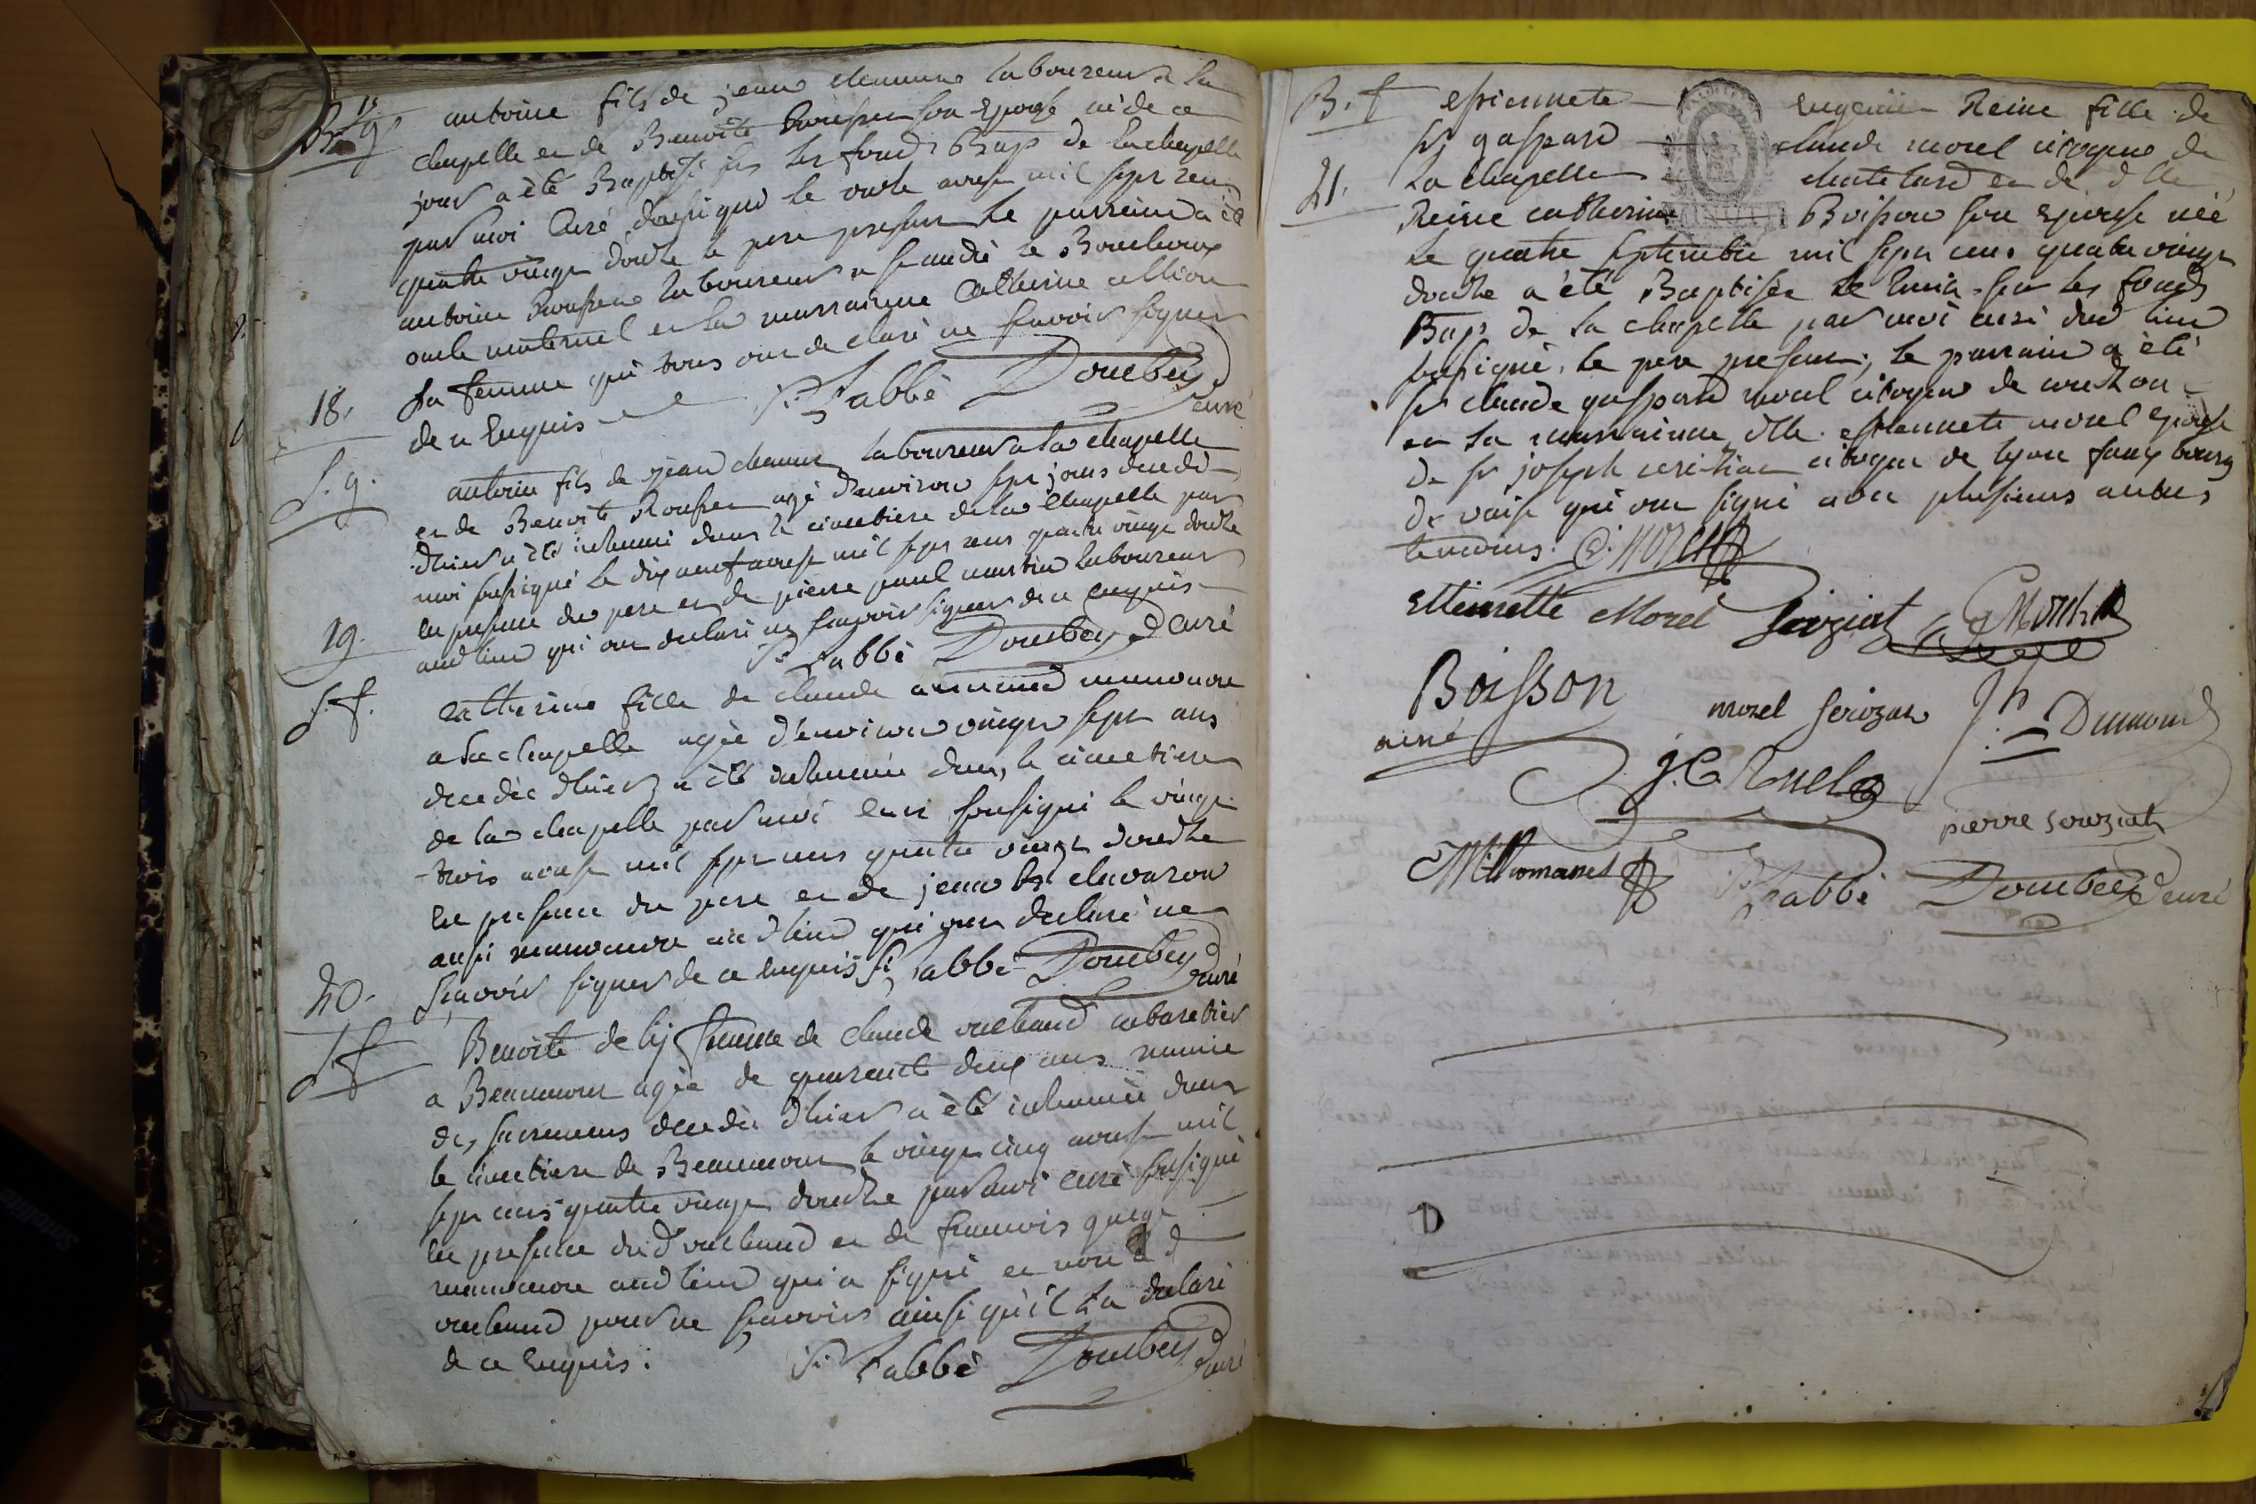 B. g.
antoine fils de jean chanuue laboureur a la
chapelle et de Benoite Rousset son Epouse né de ce
jour a été Baptisé sur les fonds Bap de La chapelle
par moi Curé soussigné le onze aoust mil sept cent
quatre vingt douze le pere present le parrain a été
antoine Rousset laboureur a st andré le Bouchoux
oncle maternel et la marrainne Catherine
sa femme qui tous ont declaré ne sçavoir signer
de ce Enquis
Labbé Dombey curé
18.
S. g.
antoine fils de jean chanuue laboureur a la chapelle
et de Benoite Rousset agé d'environ sept jours decedé
d'hier a été inhumé dans le cimetiere de la Chapelle par
moi soussigné le dix neuf aoust mil sept cent quatre vingt douze
en presence du pere et de pierre paul martin laboureur
aud lieu qui ont declaré ne sçavoir signer de ce enquis
Labbé Dombey Curé
19.
S. f.
Catherine fille de Claude manoeuvre
a La chapelle agée d'environ vingt sept ans
decedée d'hier a été inhumée dans le cimetiere
de la chapelle par moi curé soussigné le vingt
trois aoust mil sept cent quatre vingt douze
en presence du pere et de jean bt chavaron
aussi manoeuvre aud lieu qui ont declaré ne
sçavoir signer de ce enquis Labbé Dombey curé
20.
S f
Benoite de lij femme de Claude vuebaud cabaretier
a Beaumont agée de quarente deux ans munie
des sacremens decedée d'hier a été inhumée dans
le cimetiere de Beaumont le vingt cinq aoust mil
sept cent quatre vingt douze par moi curé soussigné
en presence dud vuebaud et de francois
manoeuvre aud lieu qui a signé et non led
vuebaud pour ne sçavoir ainsi qu'il l'a declaré
de ce Enquis:
Labbé Dombey curé
B. f
21.
Estiennete
gaspard
La chapelle
Reine catherine
Eugenie Reine fille de
claude morel citoyen de
chatelard et de dlle
Boisson son Epouse née
le quatre septembre mil sept cent quatre vingt
douze a été Baptisée le sur les fonds
Bap de la chapelle par moi curé dud lieu
soussigné, le pere present; le parrain a été
sr claude gaspard morel citoyen de
et la marrainne dlle Estiennete morel Epouse
de sr joseph citoyen de lyon faux bourg
de vaise qui ont signé avec plusieurs autres
temoins. C. Morel
Ettienette Morel Seriziat
Boisson
ainé
morel Seriziat
Jh Dumond
J.C. Ruel
pierre seriziat
Romanet
Labbé Dombey curé
D